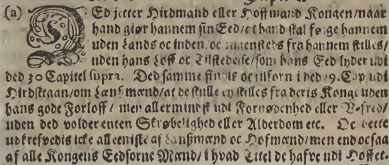 (a) SEd jetter Hirdmand eller Hoffmand Kongen/naar
hand giør hannem sin Eed/et hand skal følge hannem
uden Lands oc inden, oc ingensteds fra hannem skilles/
uden hans Loff oc Tilstedelse/som hans Eed lyder udi
ded 30 Capitel supra. Ded samme findis oc tilforn i ded 19. Cap. udi
Hirdskraan/om Lænsmænd/at de skulle ey skilles fra deris Konge uden
hans gode Forloff/ men allermindst udi Fornødenhed eller V-fred/
uden ded volder enten Skrøbelighed eller Alderdom etc. Oc dette
udkrefvedis icke alleeniste af Lænsmænd oc Hofmænd/men end ocsaa
af alle Kongens Eedsorne Mænd/ i hvad Titel de hafve udi Hoffet